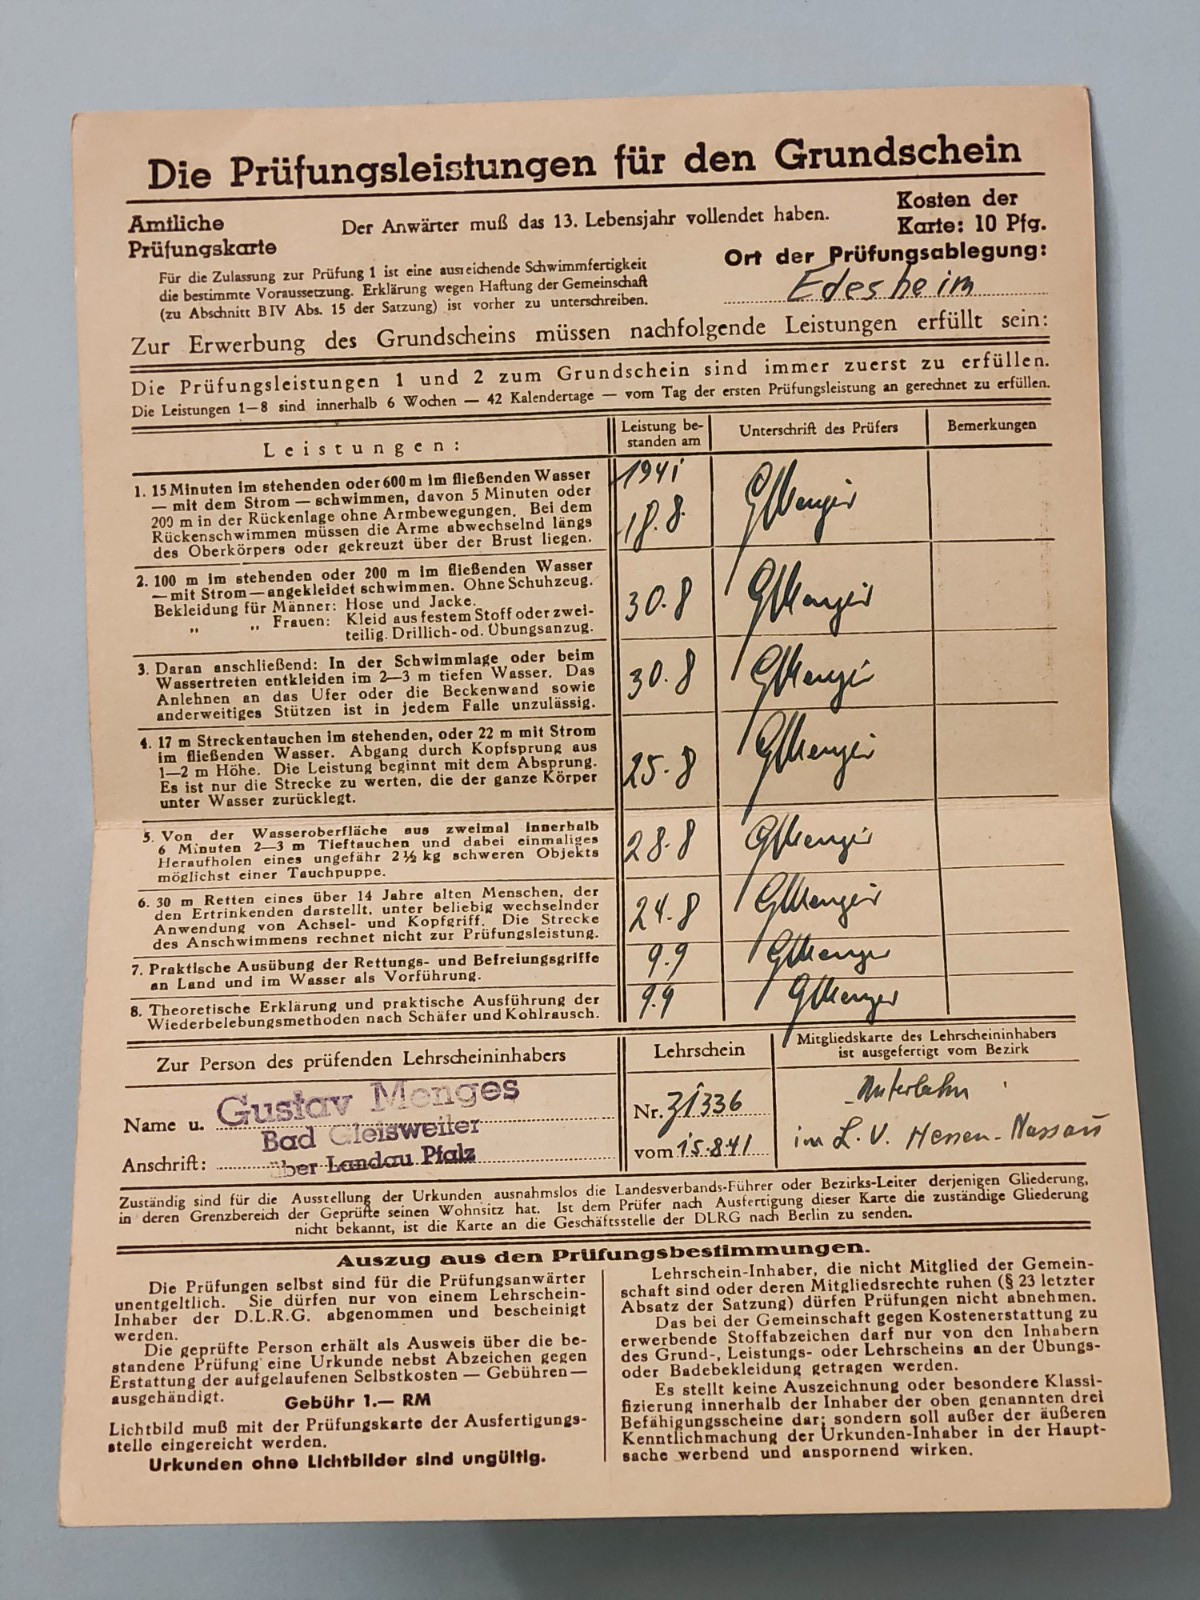 Die Prüfungsleistungen für den Grundschein
Amtliche
Prüfungskarte
Der Anwärter muß das 13. Lebensjahr vollendet haben.
Kosten der
Karte: 10 Pfg.
Für die Zulassung zur Prüfung 1 ist eine ausreichende Schwimmfertigkeit
die bestimmte Voraussetzung. Erklärung wegen Haftung der Gemeinschaft
(zu Abschnitt B IV Abs. 15 der Satzung) ist vorher zu unterschreiben.
Ort der Prüfungsablegung:
Edesheim
Zur Erwerbung des Grundscheins müssen nachfolgende Leistungen erfüllt sein:
Die Prüfungsleistungen 1 und 2 zum Grundschein sind immer zuerst zu erfüllen.
Die Leistungen 1—8 sind innerhalb 6 Wochen — 42 Kalendertage — vom Tag der ersten Prüfungsleistung an gerechnet zu erfüllen.
Leistungen:
Leistung be-
standen am
Unterschrift des Prüfers
Bemerkungen
1. 15 Minuten im stehenden oder 600 m im fließenden Wasser
— mit dem Strom — schwimmen, davon 5 Minuten oder
200 m in der Rückenlage ohne Armbewegungen. Bei dem
Rückenschwimmen müssen die Arme abwechselnd längs
des Oberkörpers oder gekreuzt über der Brust liegen.
1941
18.8.
GMenges
2. 100 m im stehenden oder 200 m im fließenden Wasser
— mit Strom — angekleidet schwimmen. Ohne Schuhzeug.
Bekleidung für Männer: Hose und Jacke.
„ „ Frauen: Kleid aus festem Stoff oder zwei-
teilig. Drillich- od. Übungsanzug.
30.8
GMenges
3. Daran anschließend: In der Schwimmlage oder beim
Wassertreten entkleiden im 2—3 m tiefen Wasser. Das
Anlehnen an das Ufer oder die Beckenwand sowie
anderweitiges Stützen ist in jedem Falle unzulässig.
30.8
GMenges
4. 17 m Streckentauchen im stehenden, oder 22 m mit Strom
im fließenden Wasser. Abgang durch Kopfsprung aus
1—2 m Höhe. Die Leistung beginnt mit dem Absprung.
Es ist nur die Strecke zu werten, die der ganze Körper
unter Wasser zurücklegt.
25.8
GMenges
5. Von der Wasseroberfläche aus zweimal innerhalb
6 Minuten 2—3 m Tieftauchen und dabei einmaliges
Heraufholen eines ungefähr 2½ kg schweren Objekts
möglichst einer Tauchpuppe.
28.8
GMenges
6. 30 m Retten eines über 14 Jahre alten Menschen, der
den Ertrinkenden darstellt, unter beliebig wechselnder
Anwendung von Achsel- und Kopfgriff. Die Strecke
des Anschwimmens rechnet nicht zur Prüfungsleistung.
24.8
GMenges
7. Praktische Ausübung der Rettungs- und Befreiungsgriffe
an Land und im Wasser als Vorführung.
9.9
GMenges
8. Theoretische Erklärung und praktische Ausführung der
Wiederbelebungsmethoden nach Schäfer und Kohlrausch.
9.9
GMenges
Zur Person des prüfenden Lehrscheininhabers
Lehrschein
Mitgliedskarte des Lehrscheininhabers
ist ausgefertigt vom Bezirk
Name u.
Anschrift:
Gustav Menges
Bad Gleisweiler
über Landau Pfalz
Nr. 31336
vom 15.8.41
Unterlahn
im L. V. Hessen-Nassau
Zuständig sind für die Ausstellung der Urkunden ausnahmslos die Landesverbands-Führer oder Bezirks-Leiter derjenigen Gliederung,
in deren Grenzbereich der Geprüfte seinen Wohnsitz hat. Ist dem Prüfer nach Ausfertigung dieser Karte die zuständige Gliederung
nicht bekannt, ist die Karte an die Geschäftsstelle der DLRG nach Berlin zu senden.
Auszug aus den Prüfungsbestimmungen.
Die Prüfungen selbst sind für die Prüfungsanwärter
unentgeltlich. Sie dürfen nur von einem Lehrschein-
Inhaber der D.L.R.G. abgenommen und bescheinigt
werden.
Die geprüfte Person erhält als Ausweis über die be-
standene Prüfung eine Urkunde nebst Abzeichen gegen
Erstattung der aufgelaufenen Selbstkosten — Gebühren —
ausgehändigt.
Gebühr 1.— RM
Lichtbild muß mit der Prüfungskarte der Ausfertigungs-
stelle eingereicht werden.
Urkunden ohne Lichtbilder sind ungültig.
Lehrschein-Inhaber, die nicht Mitglied der Gemein-
schaft sind oder deren Mitgliedsrechte ruhen (§ 23 letzter
Absatz der Satzung) dürfen Prüfungen nicht abnehmen.
Das bei der Gemeinschaft gegen Kostenerstattung zu
erwerbende Stoffabzeichen darf nur von den Inhabern
des Grund-, Leistungs- oder Lehrscheins an der Übungs-
oder Badebekleidung getragen werden.
Es stellt keine Auszeichnung oder besondere Klassi-
fizierung innerhalb der Inhaber der oben genannten drei
Befähigungsscheine dar; sondern soll außer der äußeren
Kenntlichmachung der Urkunden-Inhaber in der Haupt-
sache werbend und anspornend wirken.